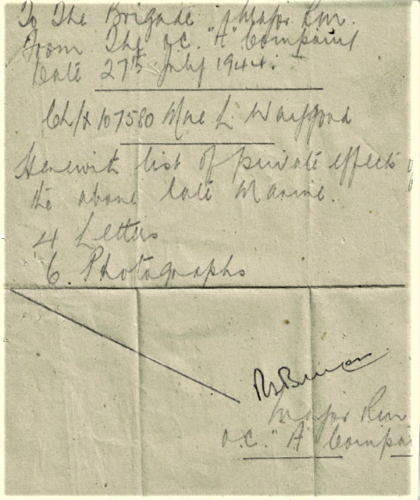 To The Brigade Major Rm.
From The O.C. "A" Company
Date 27th July 1944.
Ch/X 107580 Mne L. Wayford
Herewith list of private effects of
the above late Marine.
4 Letters
6. Photographs
Major Rm
O.C. "A" Compa